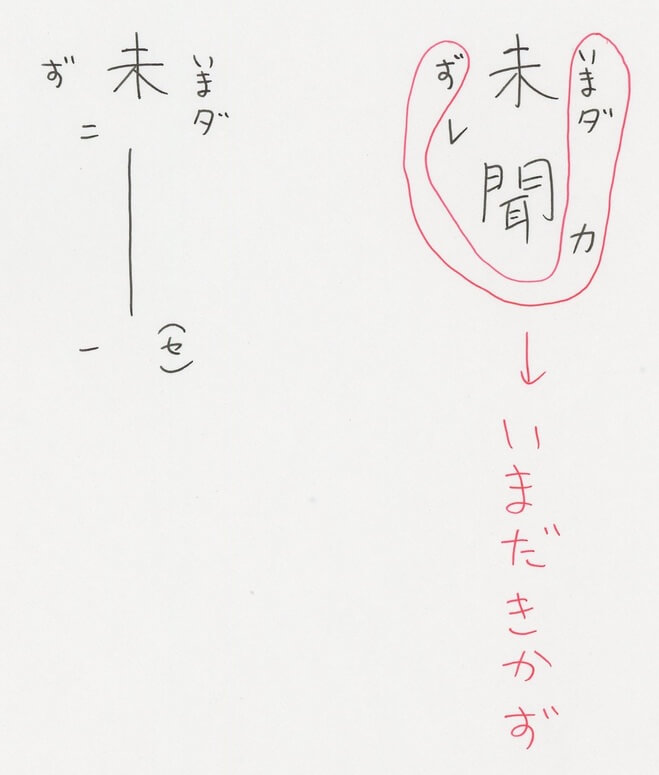 いまダ カ
未聞
ず レ
いまだきかず
いまダ (セ)
未
ず 二 一